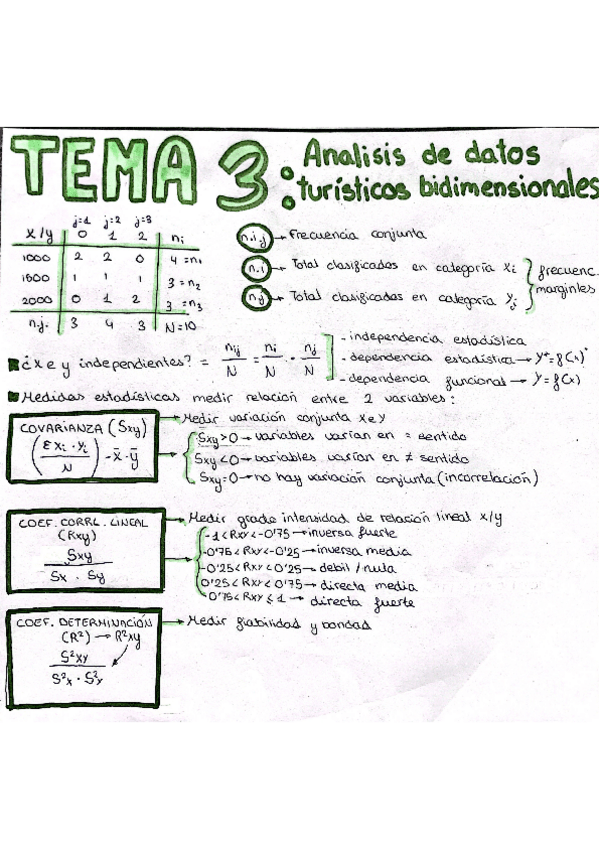 TEMA 3: Analisis de datos
turísticos bidimensionales
j=1 j=2 j=3
x/y 0 1 2 ni
1000 2 2 0 4=n1
1500 1 1 1 3=n2
2000 0 1 2 3=n3
n.j. 3 4 3 N=10
n.i.j → Frecuencia conjunta
n.i → Total clasificados en categoría Xi
n.j → Total clasificadas en categoría Yj
frecuenc.
margintes
¿x e y independientes? = nij/N = ni/N · nj/N
- independencia estadística
- dependencia estadística → y*=f(x)*
- dependencia funcional → y=f(x)
Medidas estadísticas medir relación entre 2 variables:
COVARIANZA (Sxy)
(Σxi·yi/N) - x̄·ȳ
→ Medir variación conjunta x e y
Sxy>0 → variables varían en = sentido
Sxy<0 → variables varían en ≠ sentido
Sxy=0 → no hay variación conjunta (incorrelación)
COEF. CORRL. LINEAL
(Rxy)
Sxy
Sx · Sy
→ Medir grado intensidad de relación lineal x/y
-1<Rxy<-0'75 → inversa fuerte
-0'75<Rxy<-0'25 → inversa media
-0'25<Rxy<0'25 → debil / nula
0'25<Rxy<0'75 → directa media
0'75<Rxy≤1 → directa fuerte
COEF. DETERMINACIÓN
(R²) → R²xy
S²xy
S²x · S²y
→ Medir fiabilidad y bondad